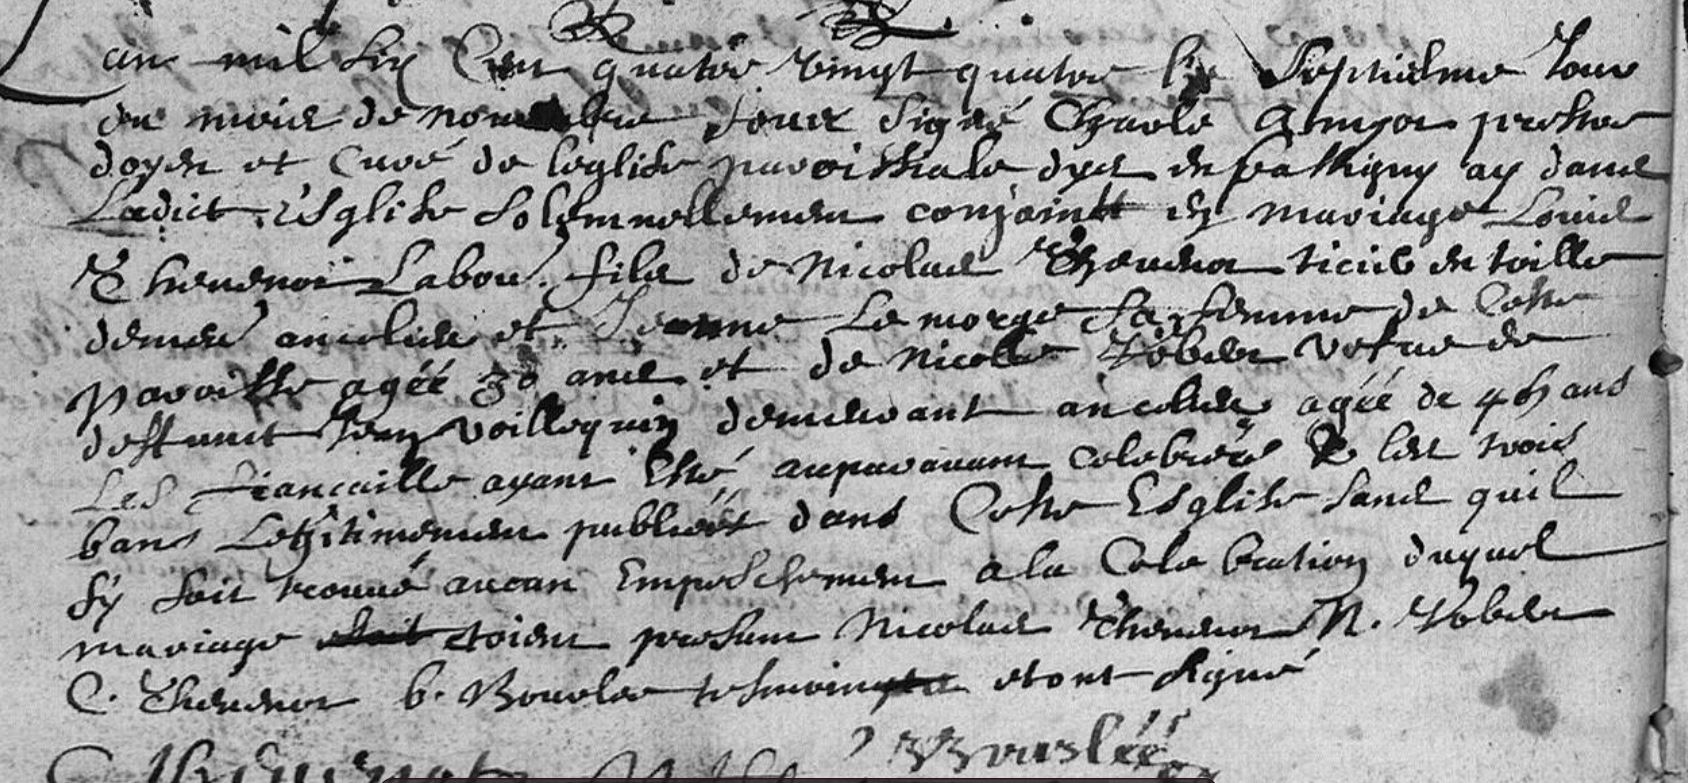 an mil six Cent quatre vingt quatre le Septiesme Jour
du mois de novembre Sous signé Charle prestre
doyen et Curé de leglise paroissiale dys en bassigny ay dans
Ladict Esglise Solemnellement conjoint en mariage Louis
Thevenot Labou. fils de Nicolas Thevenot en toille
demeu ancelles et Jeanne Le morge sa femme de Cette
paroisse agéé 30 ans et de Nicolle Jobelin vefue de
deffunct Jean voillequin demeurant agéé de 45 ans
Les fiancaille ayant Esté auparavant celebréés & les trois
bans Legitimement publiéés dans Cette Esglise sans quil
sy soit trouué aucun Empeschement a la Celebration duquel
mariage etoient present Nicolas Thevenot N. Jobelin
C. Thevenot b. Bouslee tesmoins et ont signé
Bousléé
Thevenot